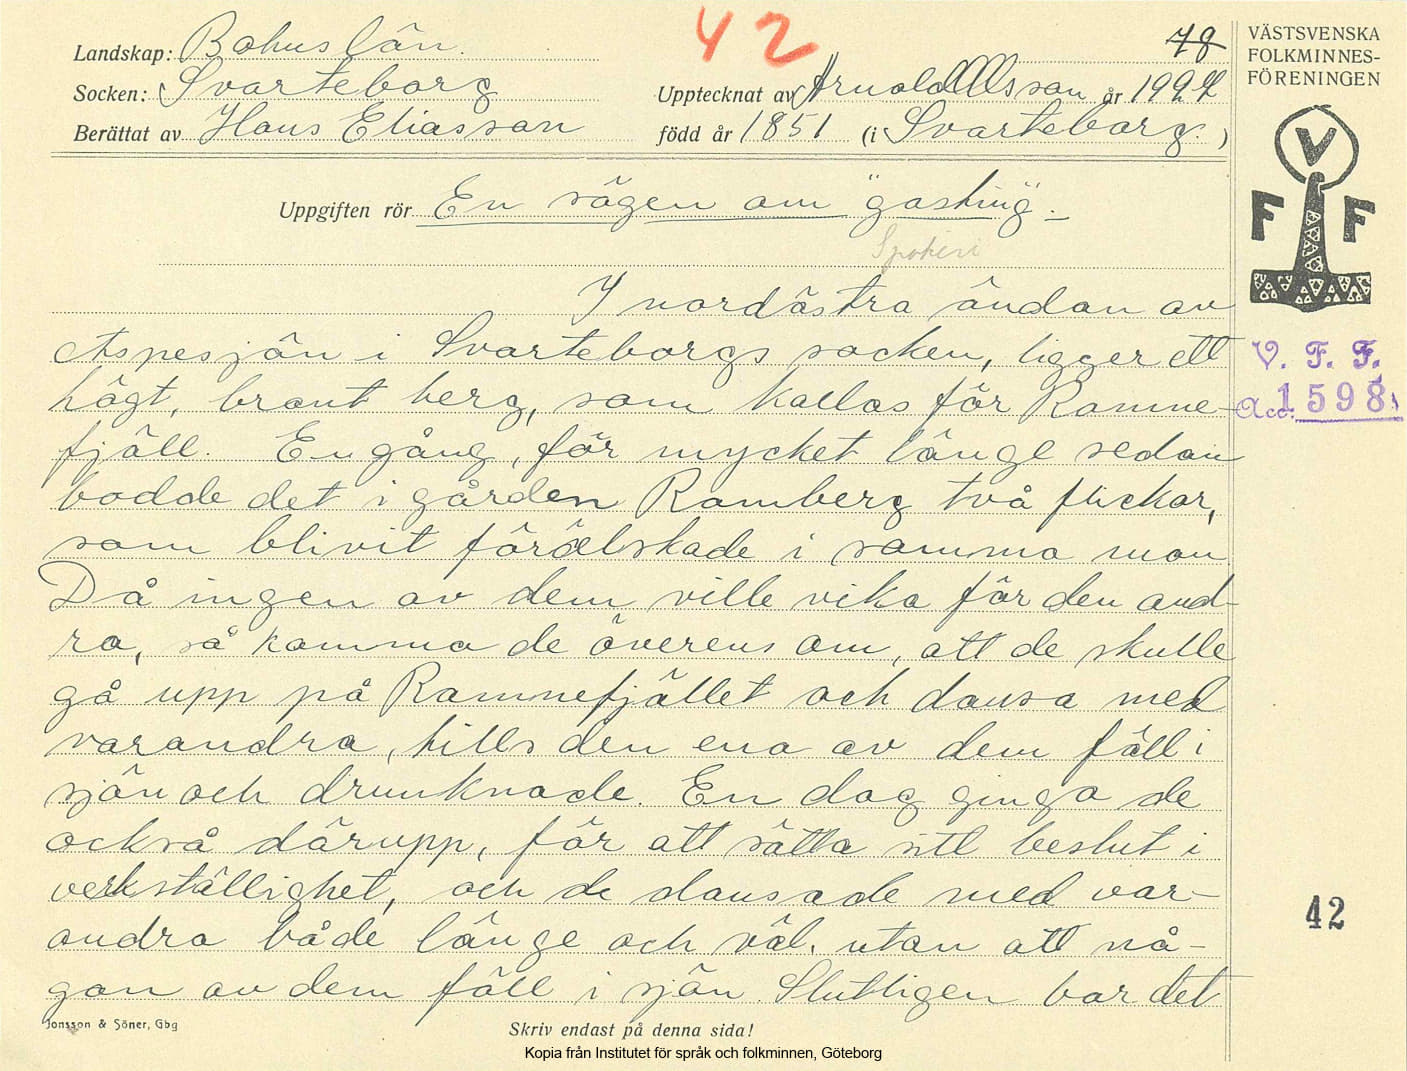 42
78
Landskap: Bohuslän.
Socken: Svarteborg
Upptecknat av Arnold Olsson år 1927
Berättat av Hans Eliasson född år 1851 (i Svarteborg. )
VÄSTSVENSKA
FOLKMINNES-
FÖRENINGEN
V
F F
Uppgiften rör En sägen om "gasting".
Spökeri
I nordöstra ändan av
Aspesjön i Svarteborgs socken, ligger ett
högt, brant berg, som kallas för Ramne-
fjäll. En gång, för mycket länge sedan
bodde det i gården Ramberg två flickor,
som blivit förälskade i samma man
Då ingen av dem ville vika för den and-
ra, så komma de överens om, att de skulle
gå upp på Ramnefjället och dansa med
varandra, tills den ena av dem föll i
sjön och drunknade. En dag gingo de
också därupp, för att sätta sitt beslut i
verkställighet, och de dansade med var-
andra både länge och väl, utan att nå-
gon av dem föll i sjön. Slutligen bar det
V. F. F.
Acc: 1598
42
Jonsson & Söner, Gbg
Skriv endast på denna sida!
Kopia från Institutet för språk och folkminnen, Göteborg